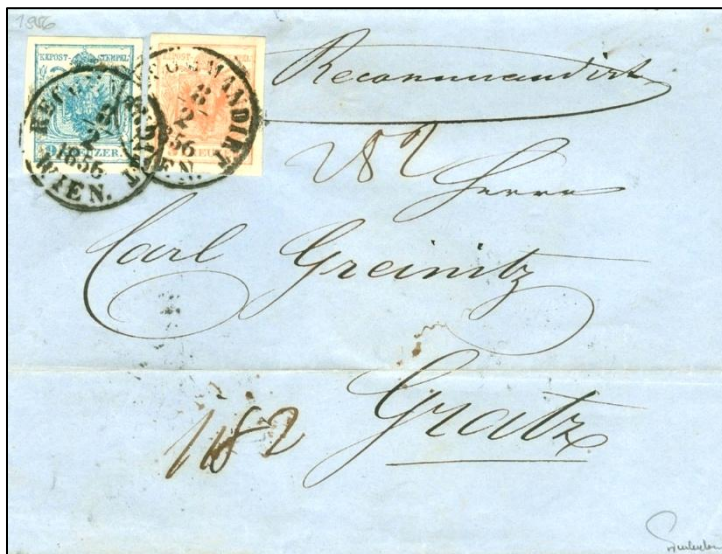 1856
K.K.POST-STEMPEL
9 KREUTZER.
RECOMMANDIRT
8
2
1856
WIEN.
RECOMMANDIRT
8
2
1856
WIEN.
Recommandirt
Herrn
Carl Greinitz
Gratz
182